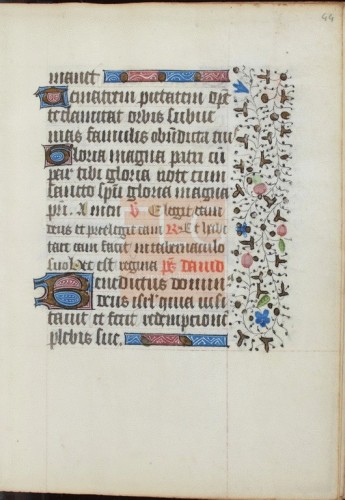 44
manet
Tu natum pietatem op̄e
te clamitat orbis subue
mas famulis obn̄dicta tui
Gloria magna patri cū
par tibi gloria note cum
sancto spū gloria magna
pri. Amen V Elegit eam
deus et preelegit eam R Et habi
tare eam facit in tabernaculo
suo Hec est regina ps̄ david
Benedictus domin
deus isrl quia uisi
tauit et fecit redemptione
plebis sue.